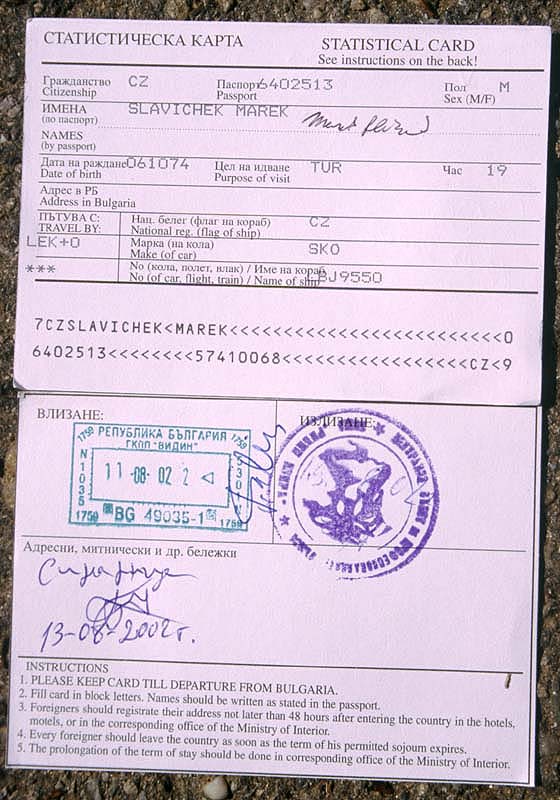 СТАТИСТИЧЕСКА КАРТА STATISTICAL CARD
See instructions on the back!
Гражданство CZ Паспорт 6402513 Пол M
Citizenship Passport Sex (M/F)
ИМЕНА SLAVICHEK MAREK
(по паспорт)
NAMES
(by passport)
Дата на раждане 061074 Цел на идване TUR Час 19
Date of birth Purpose of visit
Адрес в РБ
Address in Bulgaria
ПЪТУВА С: Нац. белег (флаг на кораб) CZ
TRAVEL BY: National reg. (flag of ship)
LEK+O Марка (на кола) SKO
Make (of car)
*** No (кола, полет, влак) / Име на кораб LBJ9550
No (of car, flight, train) / Name of ship
7CZSLAVICHEK<MAREK<<<<<<<<<<<<<<<<<<<<<<<<<<0
6402513<<<<<<<<57410068<<<<<<<<<<<<<<<<<CZ<9
ВЛИЗАНЕ: ИЗЛИЗАНЕ:
1759 РЕПУБЛИКА БЪЛГАРИЯ 1759
ГКПП "ВИДИН"
N1035
11-08-02 2
1759 BG 49035-1 1759
Адресни, митнически и др. бележки
13-08-2002г.
INSTRUCTIONS
1. PLEASE KEEP CARD TILL DEPARTURE FROM BULGARIA.
2. Fill card in block letters. Names should be written as stated in the passport.
3. Foreigners should registrate their address not later than 48 hours after entering the country in the hotels,
motels, or in the corresponding office of the Ministry of Interior.
4. Every foreigner should leave the country as soon as the term of his permitted sojourn expires.
5. The prolongation of the term of stay should be done in corresponding office of the Ministry of Interior.